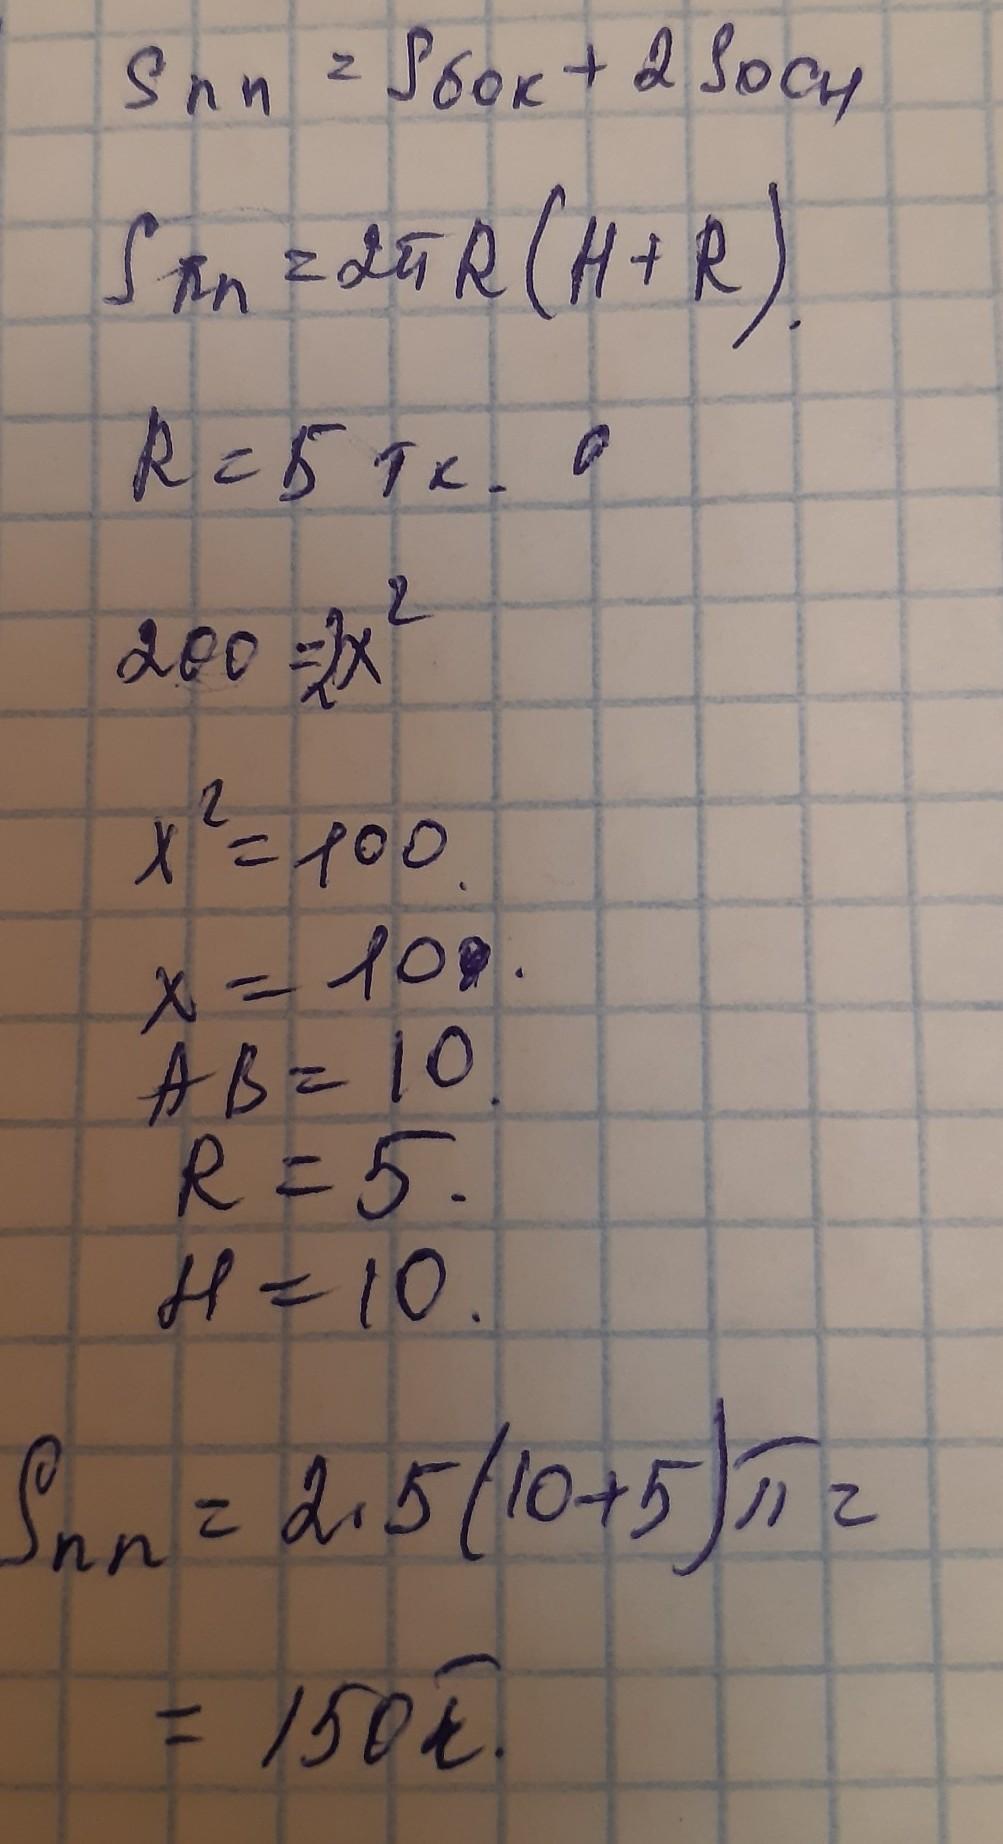 Sпп = Sбок + 2Sосн
Sпп = 2πR(H + R).
R = 5 тк.
200 = 2x²
x² = 100.
x = 10.
AB = 10.
R = 5.
H = 10.
Sпп = 2·5(10+5)π =
= 150π.